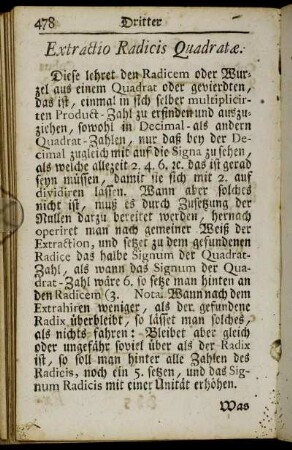 478 Dritter
Extractio Radicis Quadratæ.
Diese lehret den Radicem oder Wur-
zel aus einem Quadrat oder gevierdten,
das ist, einmal in sich selber multiplicir-
ten Product-Zahl zu erfinden und auszu-
ziehen, sowohl in Decimal- als andern
Quadrat-Zahlen, nur daß bey der De-
cimal zugleich mit auf die Signa zu sehen,
als welche allezeit 2. 4. 6. ꝛc. das ist gerad
seyn müssen, damit sie sich mit 2. auf
dividiren lassen. Wann aber solches
nicht ist, muß es durch Zusetzung der
Nullen darzu bereitet werden, hernach
operiret man nach gemeiner Weiß der
Extraction, und setzet zu dem gefundenen
Radice das halbe Signum der Quadrat-
Zahl, als wann das Signum der Qua-
drat-Zahl wäre 6. so setzt man hinten an
den Radicem (3. Nota. Wann nach dem
Extrahiren weniger, als der gefundene
Radix überbleibt, so lässet man solches
als nichts fahren: Bleibet aber gleich
oder ungefähr soviel über als der Radix
ist, so soll man hinter alle Zahlen des
Radicis, noch ein 5. setzen, und das Sig-
num Radicis mit einer Unität erhöhen.
Was